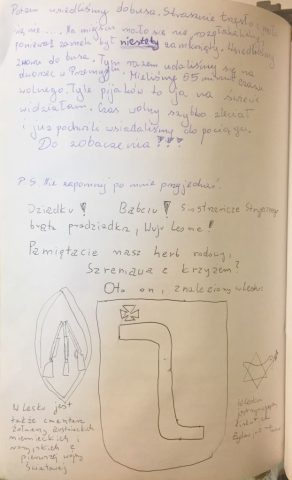 Potem wsiedliśmy do busa. Strasznie trzęsło, mało
się nie.... Na miejscu mało się nie rozpłakałam,
ponieważ zamek był niestety zamknięty. Wsiedliśmy
znowu do busa. Tym razem udaliśmy się na
dworzec w Przemyślu. Mieliśmy 65 minut czasu
wolnego. Tylu pijaków to ja na świecie
widziałam. Czas wolny szybko zleciał
i już podwieczorek wsiadaliśmy do pociągu.
Do zobaczenia!!!
P.S. Nie zapomnij po mnie przyjechać.
Dziadku! Babciu! Siostrzeńcze Stryjeczny
brata pradziadka, Wuju Leśne!
Pamiętacie nasz herb rodowy,
Szreniawa z krzyżem?
Oto on, znaleziony w Lesku
W Lesku jest
także cmentarz
żołnierzy austriackich
niemieckich i
rosyjskich z
pierwszej wojny
światowej
W Lesku